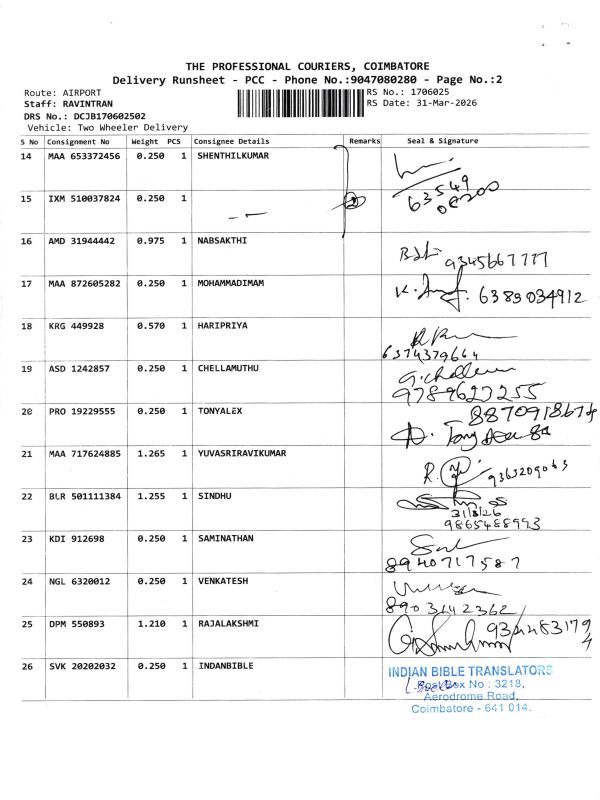 THE PROFESSIONAL COURIERS, COIMBATORE
Delivery Runsheet - PCC - Phone No.:9047080280 - Page No.:2
Route: AIRPORT RS No.: 1706025
Staff: RAVINTRAN RS Date: 31-Mar-2026
DRS No.: DCJB170602502
Vehicle: Two Wheeler Delivery
S No Consignment No Weight PCS Consignee Details Remarks Seal & Signature
14 MAA 653372456 0.250 1 SHENTHILKUMAR
63549
15 IXM 510037824 0.250 1
16 AMD 31944442 0.975 1 NABSAKTHI
9345667777
17 MAA 872605282 0.250 1 MOHAMMADIMAM
6383034912
18 KRG 449928 0.570 1 HARIPRIYA
6374379664
19 ASD 1242857 0.250 1 CHELLAMUTHU
9789627255
20 PRO 19229555 0.250 1 TONYALEX
21 MAA 717624885 1.265 1 YUVASRIRAVIKUMAR
9363209063
22 BLR 501111384 1.255 1 SINDHU
31/3/26
9865488993
23 KDI 912698 0.250 1 SAMINATHAN
8940717587
24 NGL 6320012 0.250 1 VENKATESH
8903142362
25 DPM 550893 1.210 1 RAJALAKSHMI
26 SVK 20202032 0.250 1 INDANBIBLE
INDIAN BIBLE TRANSLATORS
Post Box No : 3218,
Aerodrome Road,
Coimbatore - 641 014.